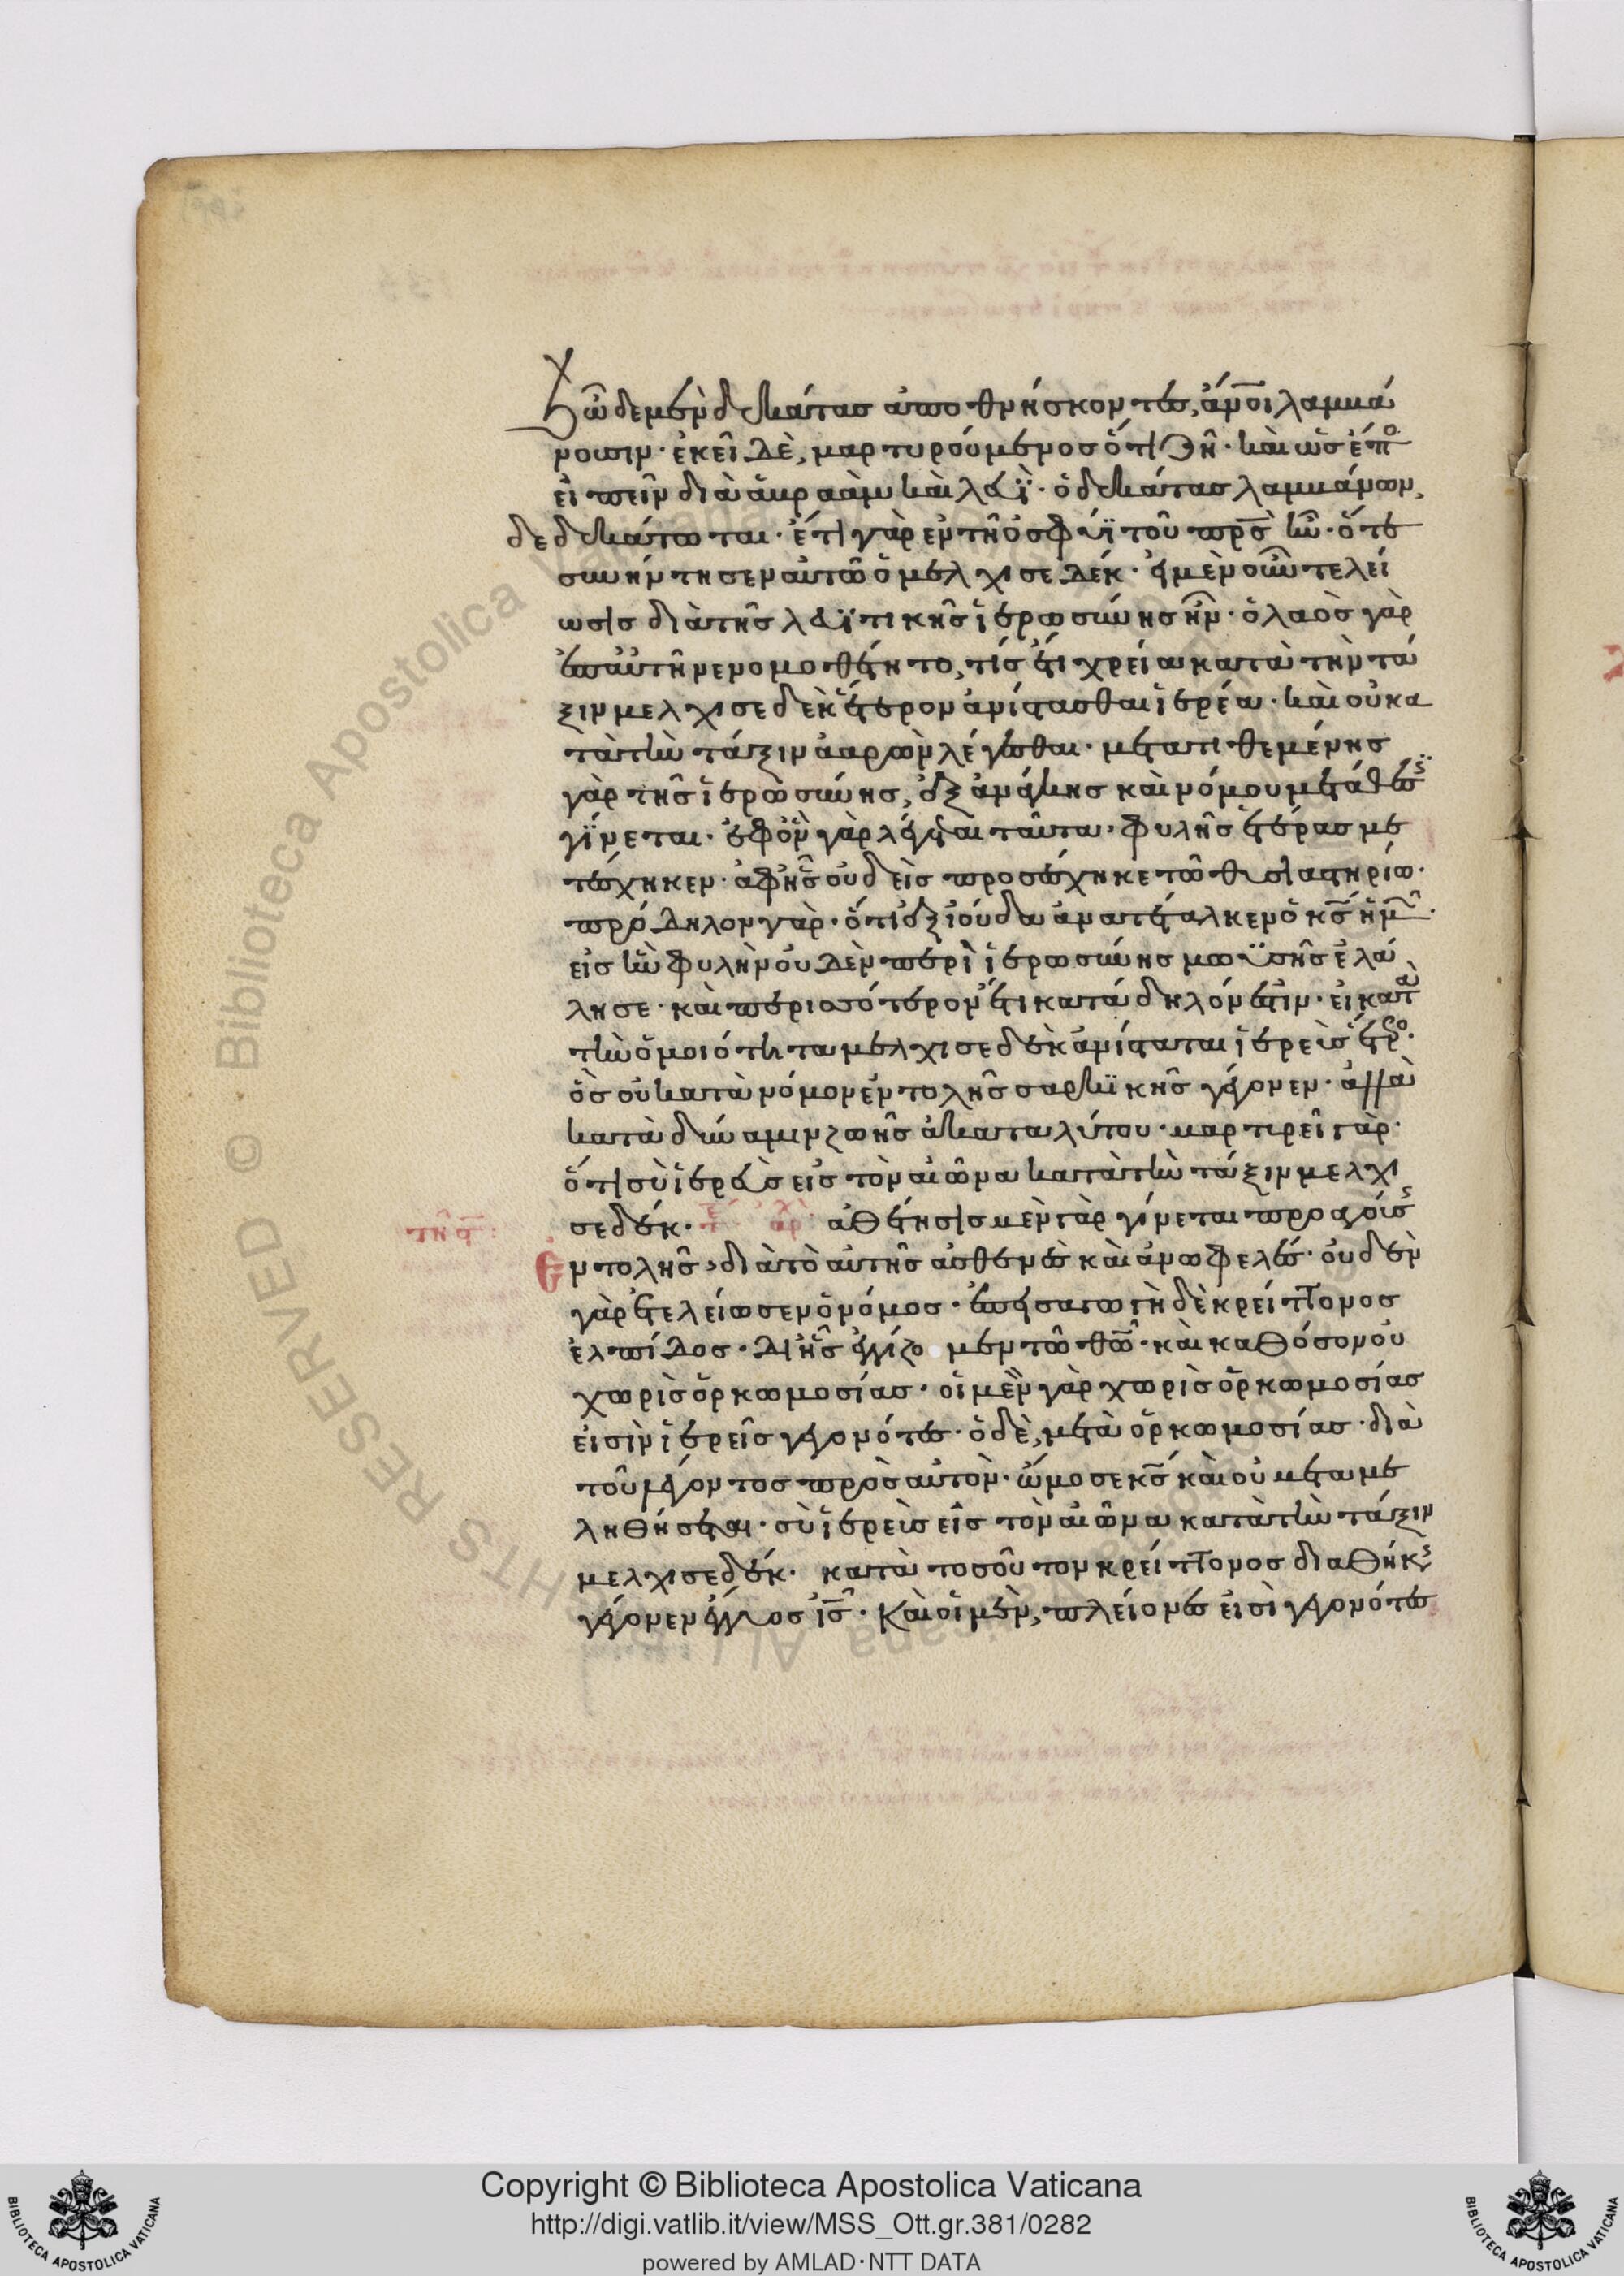 ὧδε μὲν δεκάτας ἀποθνήσκοντες, ἄνοι λαμβά
νουσιν· ἐκεῖ δὲ, μαρτυρούμενος ὅτι ζῆ· καὶ ὡς ἔπο
εἰπεῖν διὰ ἀβραὰμ καὶ λευΐ· ὁ δεκάτας λαμβάνων,
δεδεκάτωται· ἔτι γὰρ ἐν τῆ ὀσφύϊ τοῦ πρς ἦν· ὅτε
συνήντησεν αὐτῶ ὁ μελχισεδέκ· εἰ μὲν οὖν τελεί
ωσις διὰ τῆς λευϊτικῆς ἱερωσύνης ἦν· ὁ λαὸς γὰρ
ἐπ αὐτῆ νενομοθέτητο, τίς ἔτι χρεία κατὰ τὴν τά
ξιν μελχισεδὲκ ἕτερον ἀνίστασθαι ἱερέα· καὶ οὐ κα
τὰ τὴν τάξιν ἀαρὼν λέγεσθαι· μετατιθεμένης
γὰρ τῆς ἱερωσύνης, ἐξ ἀνάγκης καὶ νόμου μετάθεσις
γίνεται· ἐφ ὃν γὰρ λέγεται ταῦτα· φυλῆς ἑτέρας με
τέσχηκεν· ἀφ ἧς οὐδεὶς προσέσχηκε τῶ θυσιαστηρίω·
πρόδηλον γὰρ· ὅτι ἐξ ἰούδα ἀνατέταλκεν ὁ κς ἡμῶν·
εἰς ἣν φυλὴν οὐδὲν περὶ ἱερωσύνης μωϋσῆς ἐλά
λησε· καὶ περισσότερον ἔτι κατάδηλόν ἐστιν· εἰ κατὰ
τὴν ὁμοιότητα μελχισεδὲκ ἀνίσταται ἱερεὺς ἕτερο·
ὃς οὐ κατὰ νόμον ἐντολῆς σαρκϊκῆς γέγονεν· ἀλλὰ
κατὰ δύναμιν ζωῆς ἀκαταλύτου· μαρτυρεῖ γὰρ·
ὅτι σὺ ἱερεὺς εἰς τὸν αἰῶνα κατὰ τὴν τάξιν μελχι
σεδέκ· ἀθέτησις μὲν γὰρ γίνεται προαγούσης
ἐντολῆς, διὰ τὸ αὐτῆς ἀσθενὲς καὶ ἀνωφελές· οὐδὲν
γὰρ ἐτελείωσεν ὁ νόμος· ἐπεισαγωγὴ δὲ κρείττονος
ἐλπίδος· δι ἧς ἐγγίζομεν τῶ θῶ· καὶ καθόσον οὐ
χωρὶς ὁρκωμοσίας· οἱ μὲν γὰρ χωρὶς ὁρκωμοσίας
εἰσὶν ἱερεῖς γεγονότες· ὁ δὲ, μετὰ ὁρκωμοσίας· διὰ
τοῦ λέγοντος πρὸς αὐτὸν· ὤμοσε κς καὶ οὐ μεταμε
ληθήσεται· σὺ ἱερεὺς εἰς τὸν αἰῶνα κατὰ τὴν τάξιν
μελχισεδέκ· κατὰ τοσοῦτον κρείττονος διαθήκης
γέγονεν ἔγγυος ἰς· Καὶ οἱ μὲν, πλείονές εἰσὶ γεγονότες